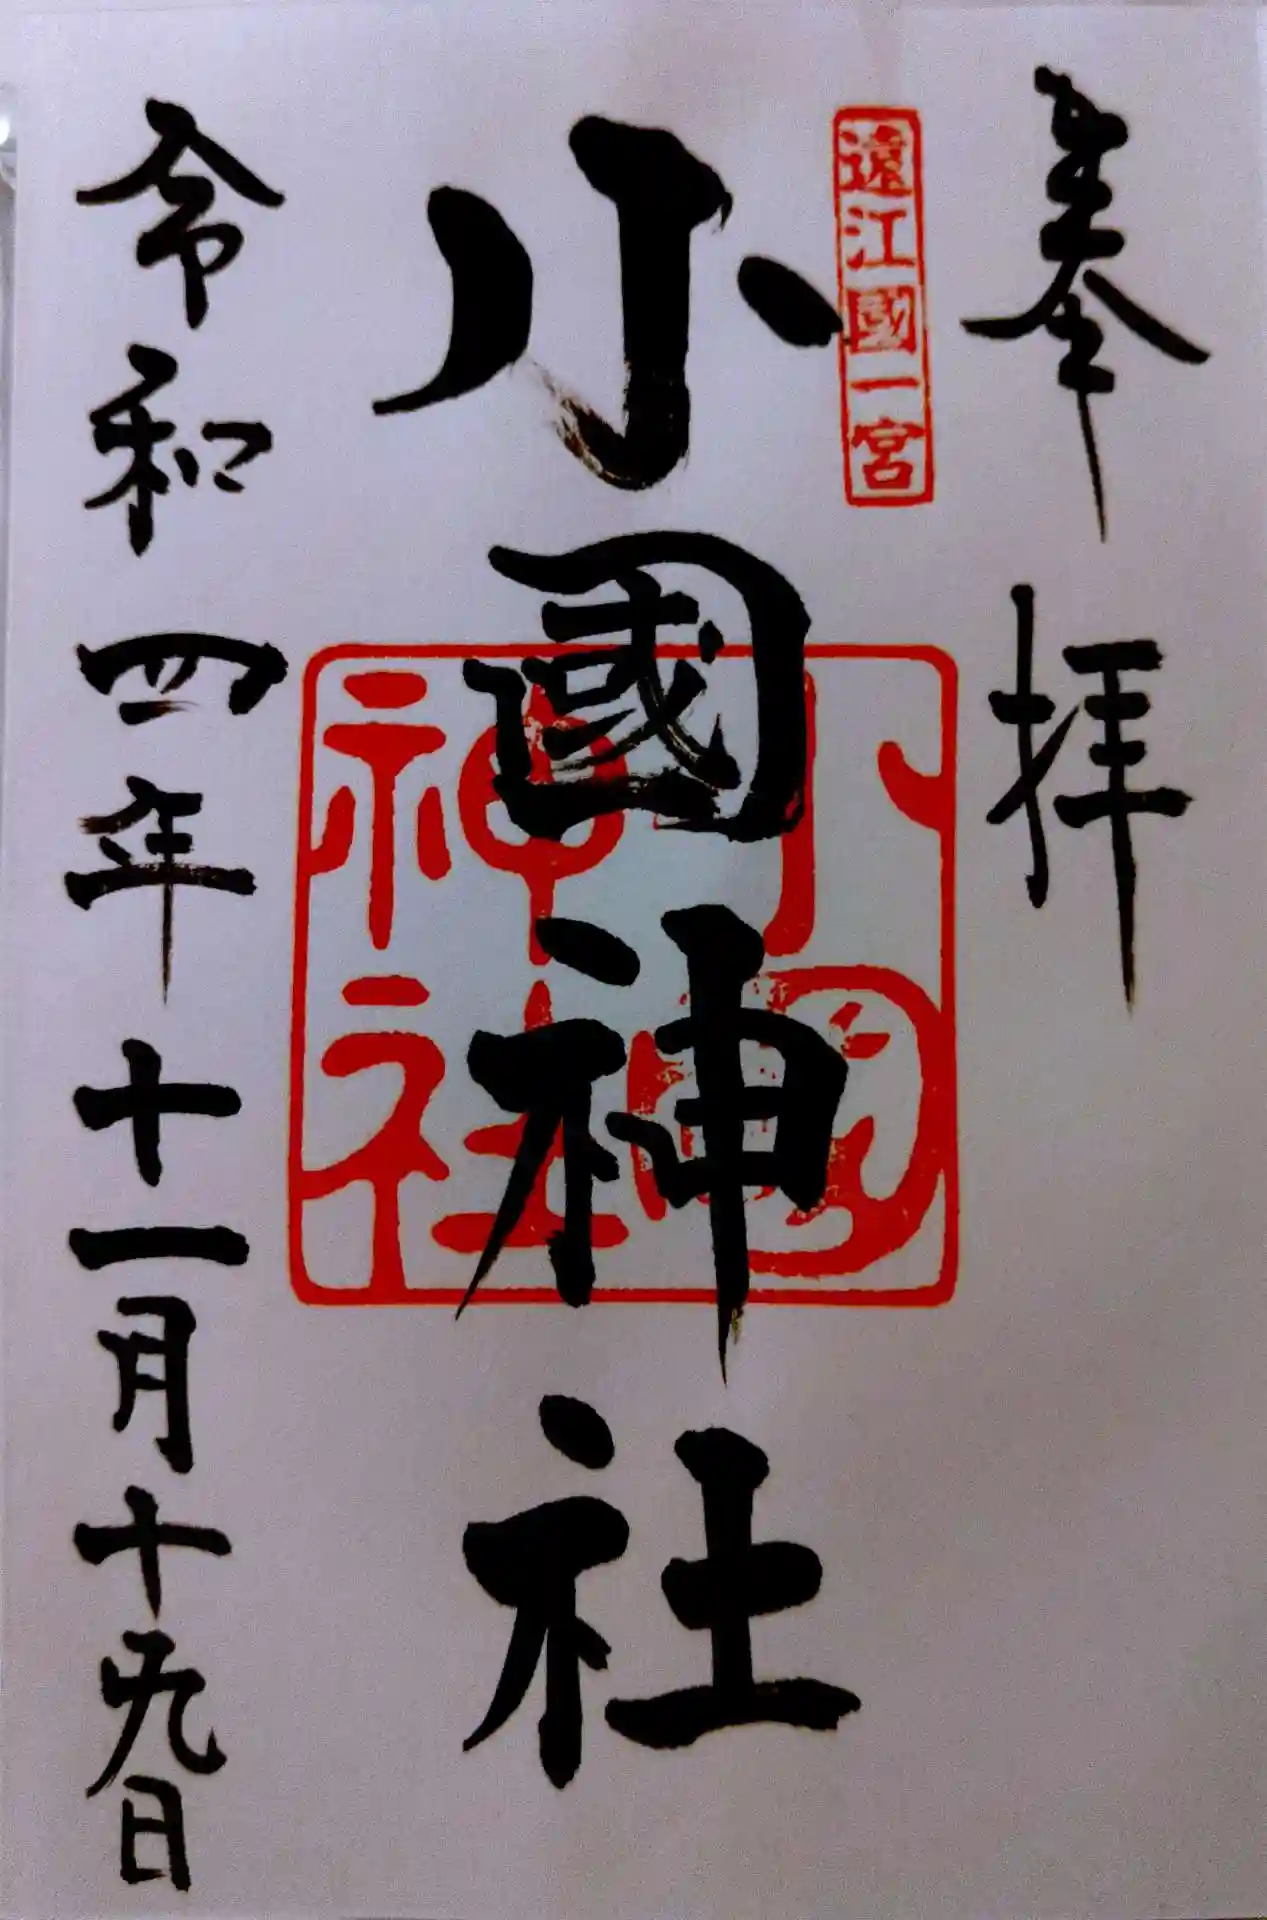 奉拝
遠江國一宮
小國神社
小國
神社
令和四年十一月十九日